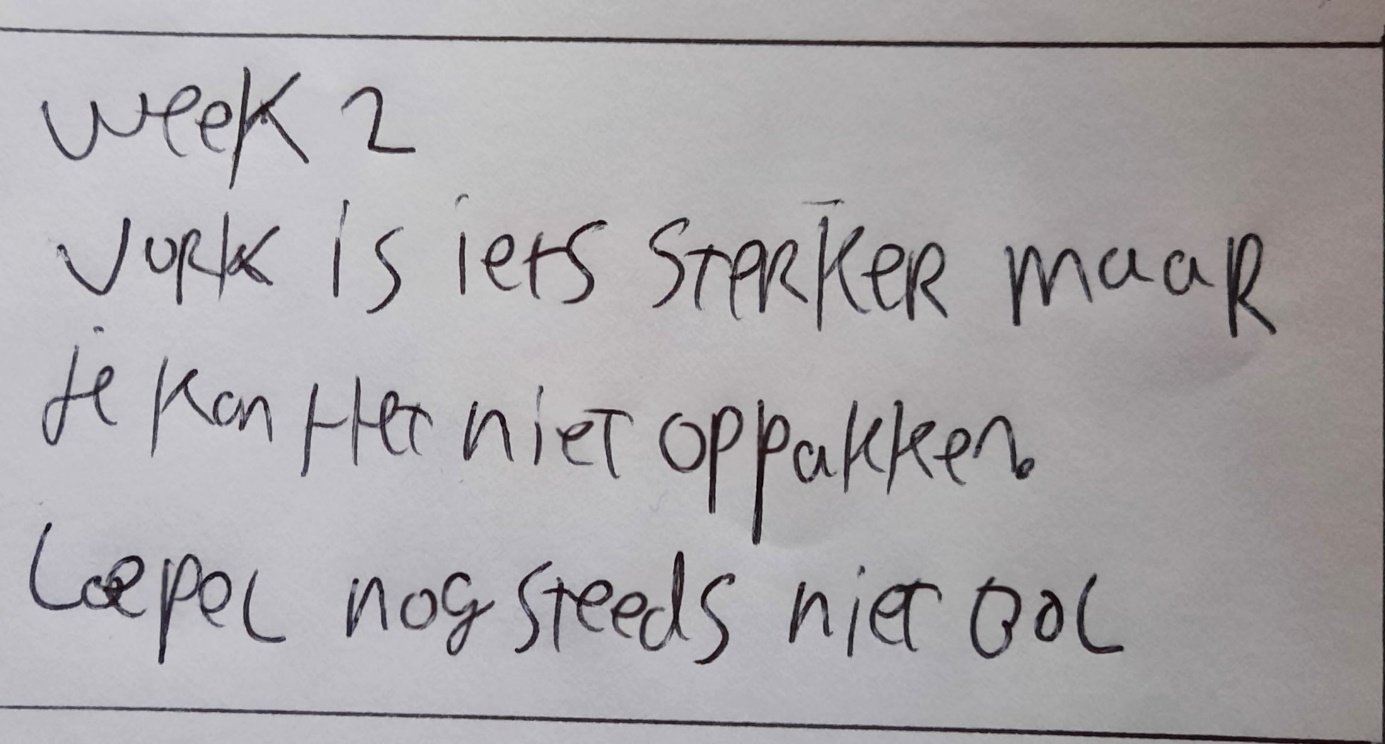 week 2
vork is iets sterker maar
je kan Het niet oppakken.
Loepel nog steeds niet Bol